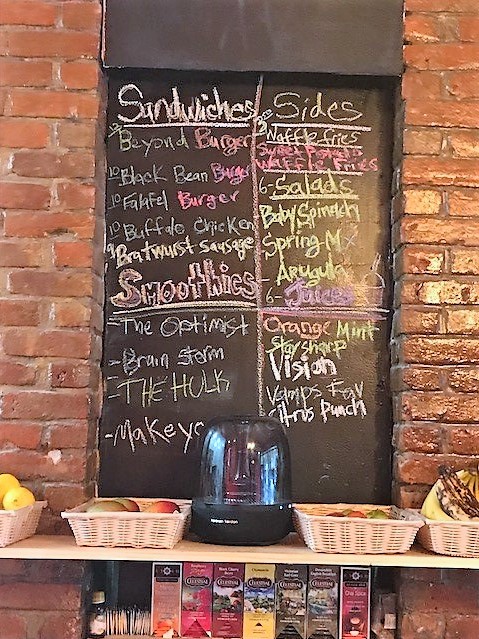 Sandwiches
Beyond Burger
10 Black Bean Burger
10 Falafel Burger
10 Buffalo Chicken
9 Bratwurst Sausage
Smoothies
- The Optimist
- Brain Storm
- THE HULK
- Make yo
Sides
Waffle fries
Sweet Potato
Waffle Fries
6- Salads
Baby Spinach
Spring Mix
Arugula
6- Juices
Orange Mint
Stay sharp
Vision
Vamps Fav
Citrus Punch
harman kardon
CELESTIAL
CELESTIAL
CELESTIAL
CELESTIAL
CELESTIAL
Chai Spice